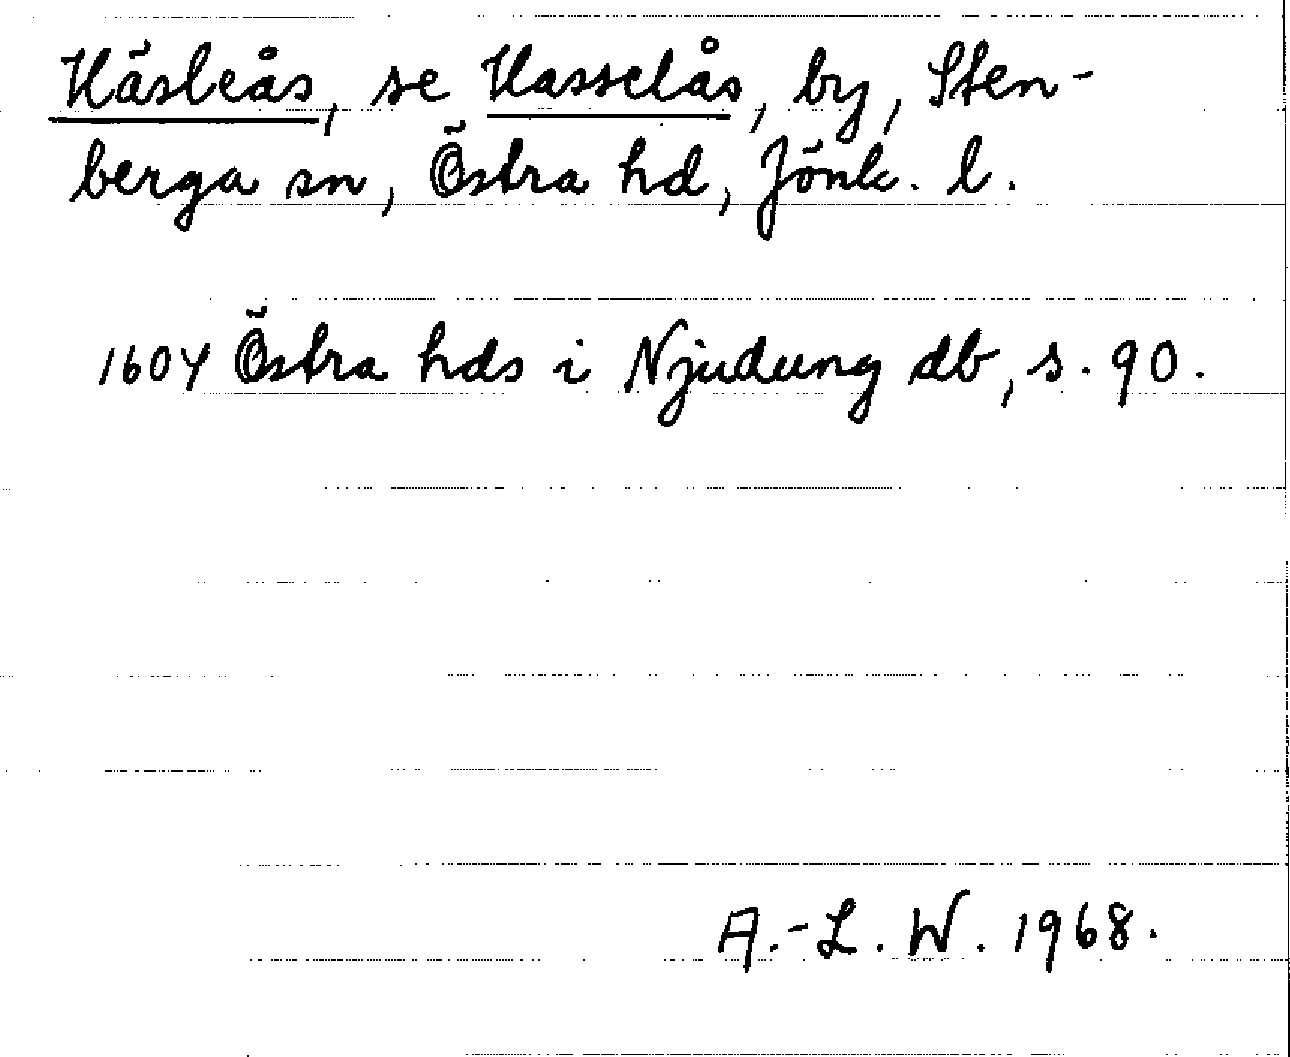 Häsleås, se Hasselås, by, Sten-
berga sn, Östra hd, Jönk. l.
1604 Östra hds i Njudung db, s. 90.
A.-L. W. 1968.